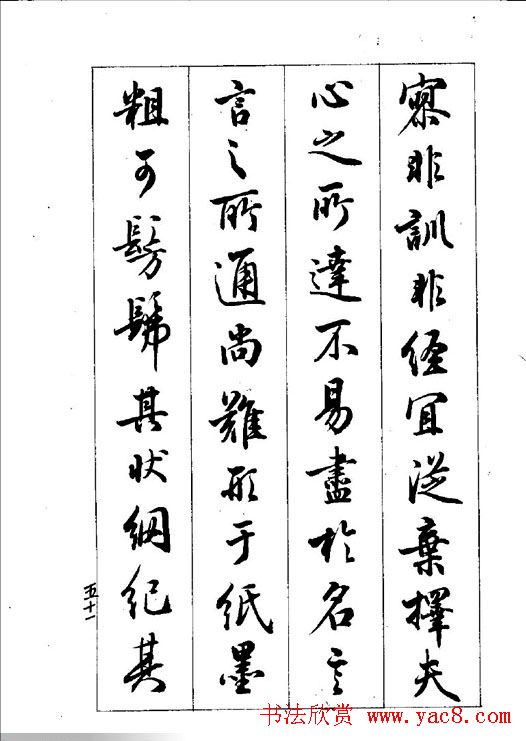 察非訓非經宜從棄擇夫
心之所達不易盡於名言
言之所通尚難形于紙墨
粗可髣髴其状綱紀其
五十一
书法欣赏 www.yac8.com